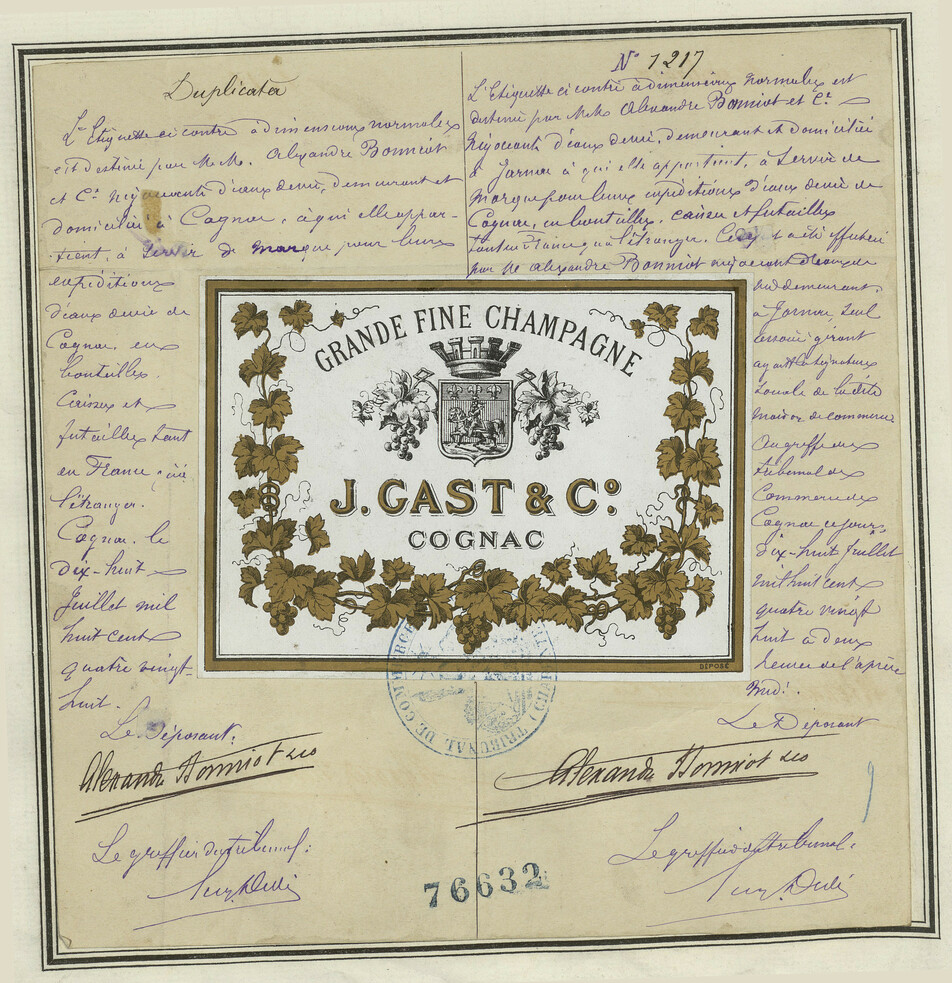 Duplicata
L'Etiquette ci contre à dimensions normales
est destinée par M.M. Alexandre Bonniot
et Cie Négociants d'eaux de vie, demeurant et
domiciliés à Cognac, à qui elle appar-
tient, à servir de marque pour leurs
expéditions
d'eaux de vie de
Cognac, en
bouteilles
Caisses et
futailles tant
en France qu'à
l'étranger.
Cognac, le
dix-huit
Juillet mil
huit cent
quatre vingt-
huit.
Le Déposant:
Alexandre Bonniot & Co
Le greffier du tribunal:
N° 1217
L'Etiquette ci contre à dimensions normales est
destinée par M.M. Alexandre Bonniot et Cie
Négociants d'eaux de vie, demeurant et domiciliés
à Jarnac à qui elle appartient, à servir de
marque pour leurs expéditions d'eaux de vie de
Cognac, en bouteilles, caisses et futailles
tant en France qu'à l'étranger. Ce dépôt a été effectué
par M. Alexandre Bonniot négociant d'eaux de
vie demeurant
à Jarnac, seul
associé gérant
ayant la signature
sociale de la dite
maison de commerce
Au greffe du
tribunal de
Commerce de
Cognac ce jour
dix-huit Juillet
mil huit cent
quatre vingt
huit à deux
heures de l'après
midi.
Le Déposant
Alexandre Bonniot & Co
Le greffier du tribunal:
GRANDE FINE CHAMPAGNE
J. GAST & Co.
COGNAC
DÉPOSÉ
TRIBUNAL DE COMMERCE
76632